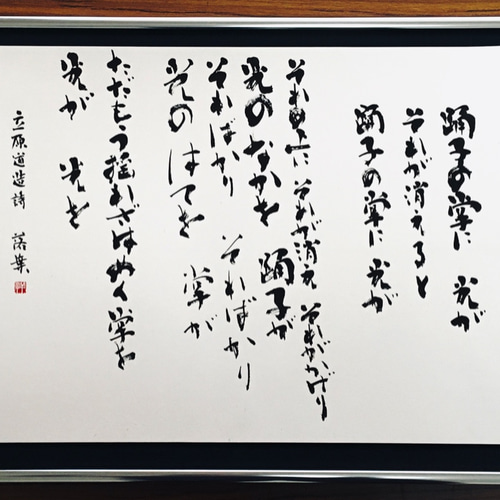 踊子の掌に 光が
それが消えると
踊子の掌に 光が
それが消え それがかげり
光のなかを 踊子が
そればかり そればかり
光のはてを 掌が
ただもう揺れざはめく掌を
光が 光を
立原道造詩